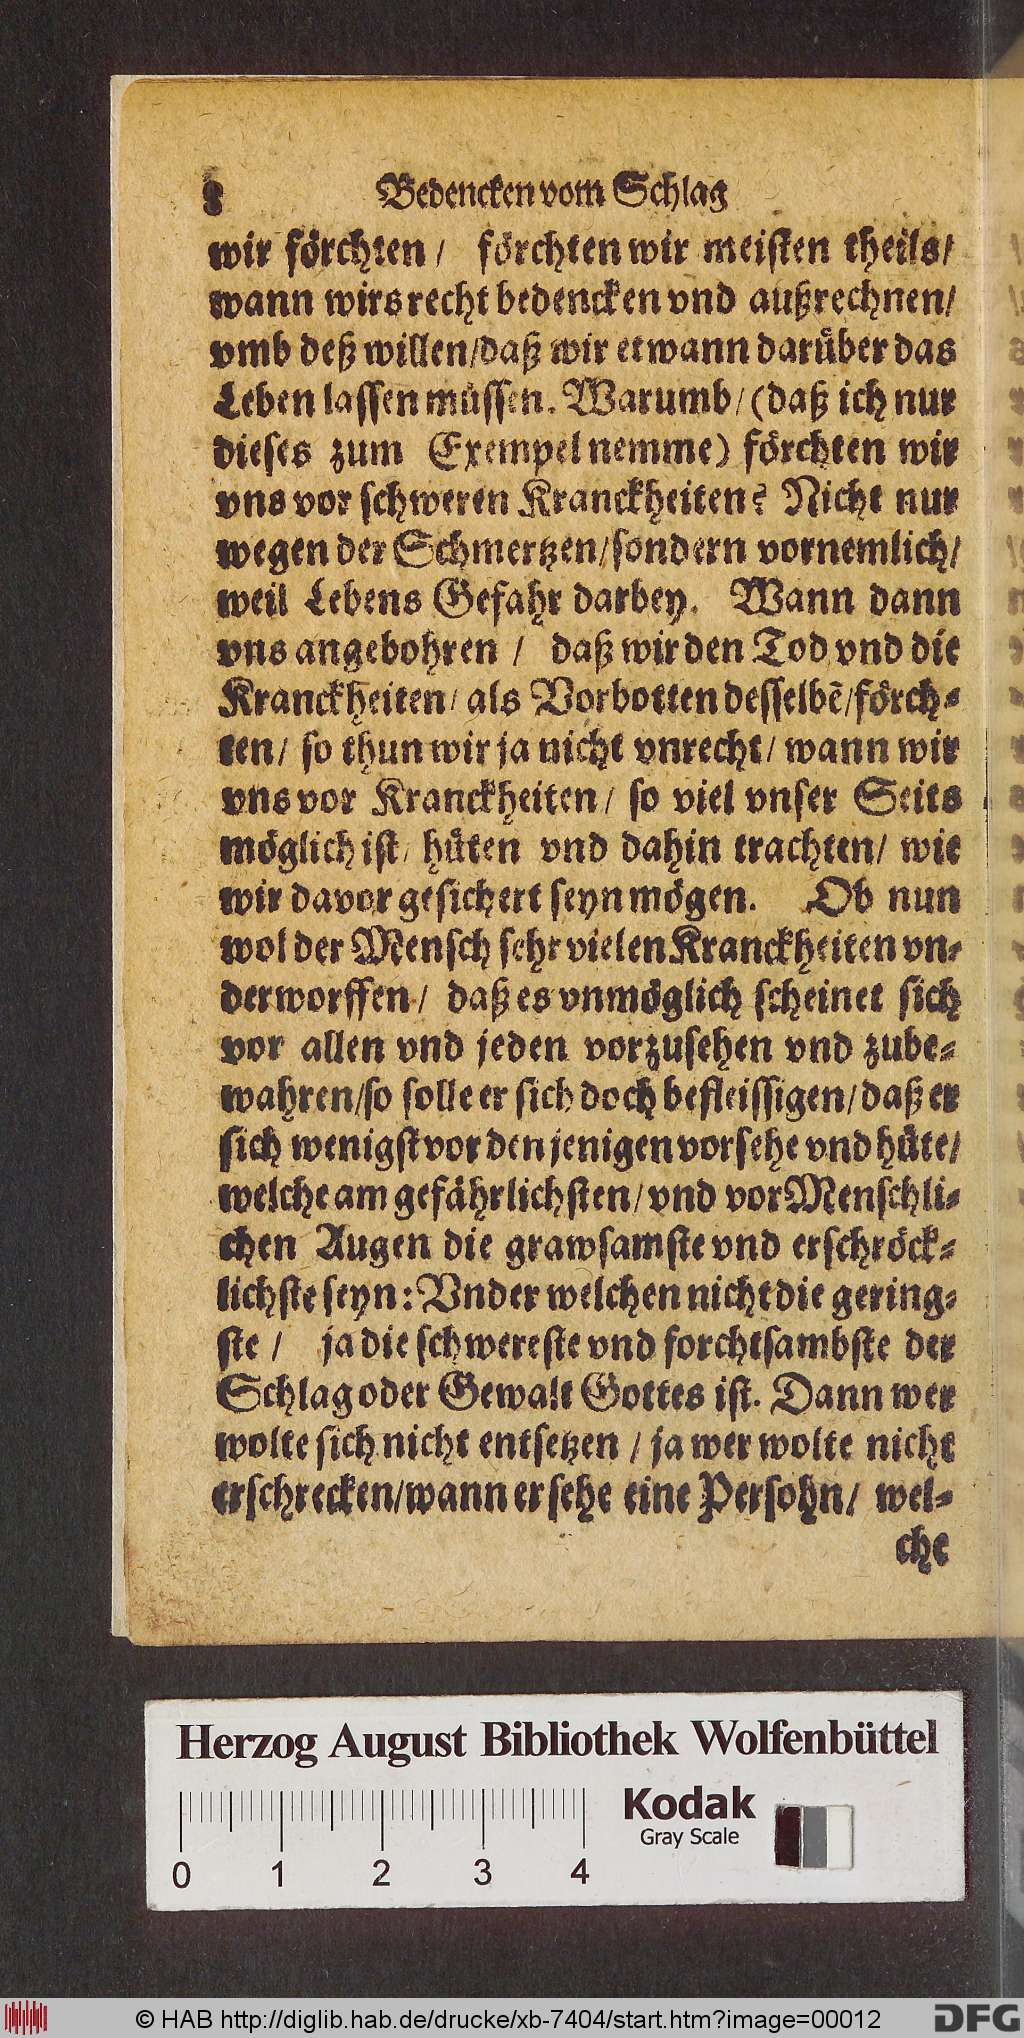 8 Bedencken vom Schlag
wir förchten / förchten wir meisten theils/
wann wirs recht bedencken vnd außrechnen/
vmb deß willen/daß wir etwann darüber das
Leben lassen müssen. Warumb/(daß ich nur
dieses zum Exempel nemme) förchten wir
vns vor schweren Kranckheiten? Nicht nur
wegen der Schmertzen/sondern vornemlich/
weil Lebens Gefahr darbey. Wann dann
vns angebohren / daß wir den Tod vnd die
Kranckheiten/ als Vorbotten desselbē/förch-
ten/ so thun wir ja nicht vnrecht/ wann wir
vns vor Kranckheiten/ so viel vnser Seits
möglich ist/ hüten vnd dahin trachten/ wie
wir davor gesichert seyn mögen. Ob nun
wol der Mensch sehr vielen Kranckheiten vn-
derworffen/ daß es vnmöglich scheinet sich
vor allen vnd jeden vorzusehen vnd zube-
wahren/so solle er sich doch befleissigen/daß er
sich wenigst vor den jenigen vorsehe vnd hüte/
welche am gefährlichsten/vnd vor Menschli-
chen Augen die grawsamste vnd erschröck-
lichste seyn: Vnder welchen nicht die gering-
ste / ja die schwereste vnd forchtsambste der
Schlag oder Gewalt Gottes ist. Dann wer
wolte sich nicht entsetzen / ja wer wolte nicht
erschrecken/wann er sehe eine Persohn/ wel-
che
Herzog August Bibliothek Wolfenbüttel
Kodak
Gray Scale
0 1 2 3 4
© HAB http://diglib.hab.de/drucke/xb-7404/start.htm?image=00012
DFG